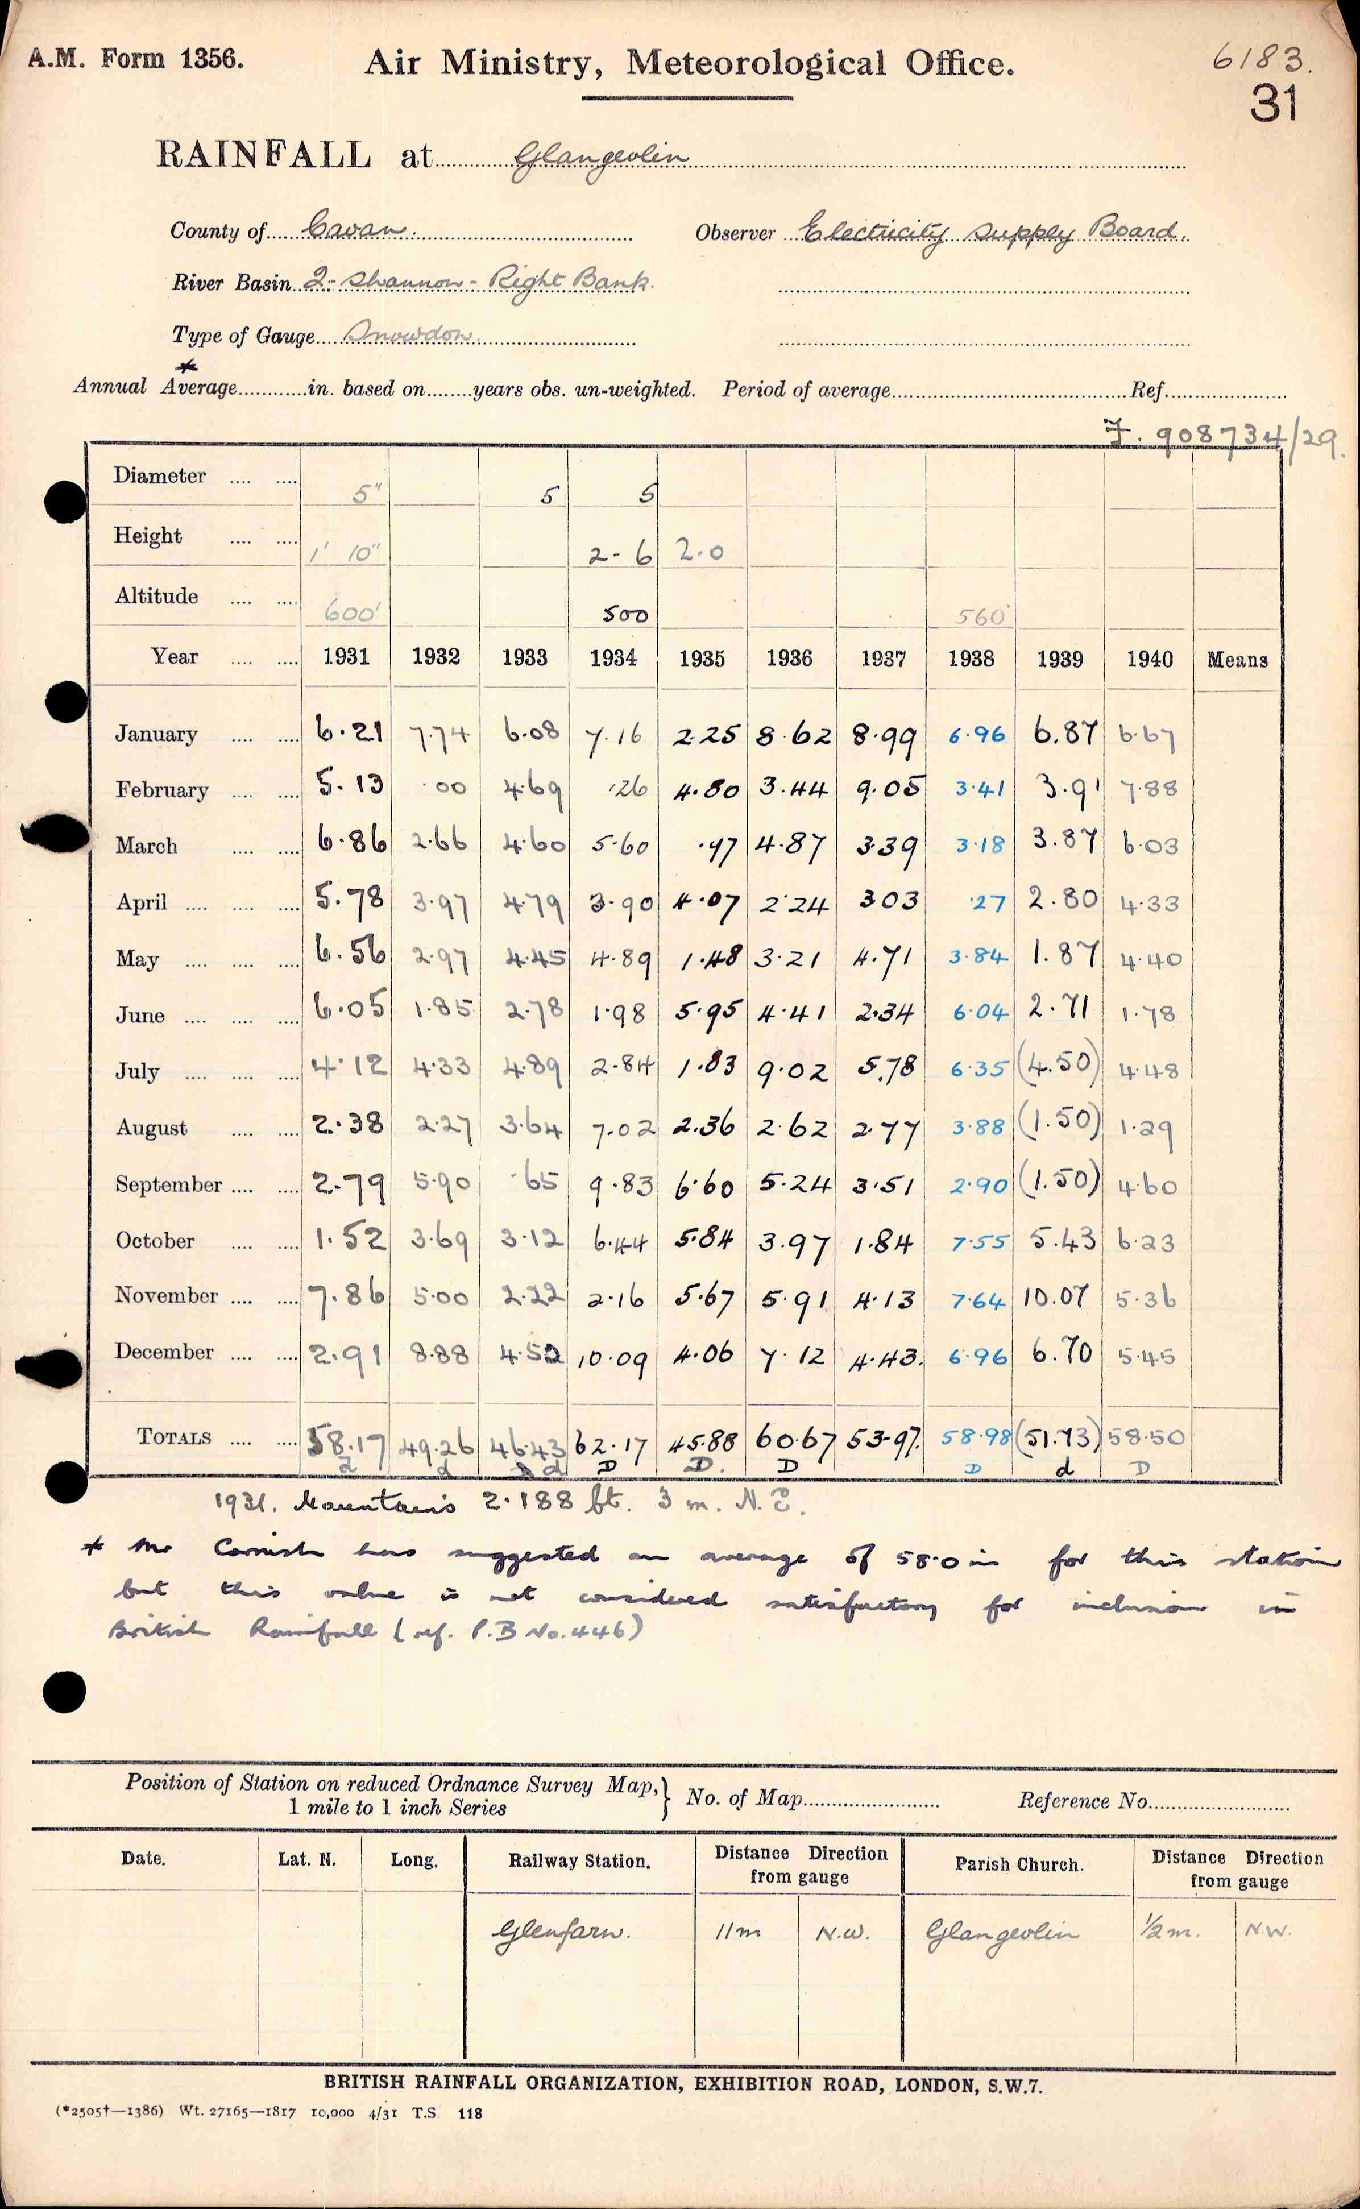 A.M. Form 1356.
Air Ministry, Meteorological Office.
6183.
31
RAINFALL at Glangevlin
County of Cavan.
Observer Electricity Supply Board.
River Basin 2- Shannon - Right Bank.
Type of Gauge Snowdon
*
Annual Average in. based on years obs. un-weighted. Period of average Ref.
F. 908734/29.
Diameter 5" 5 5
Height 1' 10" 2-6 2.0
Altitude 600' 500 560'
Year 1931 1932 1933 1934 1935 1936 1937 1938 1939 1940 Means
January 6.21 7.74 6.08 7.16 2.25 8.62 8.99 6.96 6.87 6.67
February 5.13 .00 4.69 .26 4.80 3.44 9.05 3.41 3.91 7.88
March 6.86 2.66 4.60 5.60 .97 4.87 3.39 3.18 3.87 6.03
April 5.78 3.97 4.79 3.90 4.07 2.24 3.03 .27 2.80 4.33
May 6.56 2.97 4.45 4.89 1.48 3.21 4.71 3.84 1.87 4.40
June 6.05 1.85 2.78 1.98 5.95 4.41 2.34 6.04 2.71 1.78
July 4.12 4.33 4.89 2.84 1.83 9.02 5.78 6.35 (4.50) 4.48
August 2.38 2.27 3.64 7.02 2.36 2.62 2.77 3.88 (1.50) 1.29
September 2.79 5.90 .65 9.83 6.60 5.24 3.51 2.90 (1.50) 4.60
October 1.52 3.69 3.12 6.44 5.84 3.97 1.84 7.55 5.43 6.23
November 7.86 5.00 2.22 2.16 5.67 5.91 4.13 7.64 10.07 5.36
December 2.91 8.88 4.52 10.09 4.06 7.12 4.43. 6.96 6.70 5.45
TOTALS 58.17 49.26 46.43 62.17 45.88 60.67 53.97. 58.98 (51.73) 58.50
d d d D D. D D d D
1931. Mountains 2.188 ft. 3 m. N.E.
* Mr Cornish has suggested an average of 58.0 in for this station
but this value is not considered satisfactory for inclusion in
British Rainfall (ref. P.B No. 446)
Position of Station on reduced Ordnance Survey Map,}
1 mile to 1 inch Series
No. of Map
Reference No.
Date. Lat. N. Long. Railway Station. Distance Direction from gauge Parish Church. Distance Direction from gauge
Glenfarn. 11m N.W. Glangevlin 1/2 m. N.W.
BRITISH RAINFALL ORGANIZATION, EXHIBITION ROAD, LONDON, S.W.7.
(*2505†—1386) Wt. 27165—1817 10,000 4/31 T.S 118